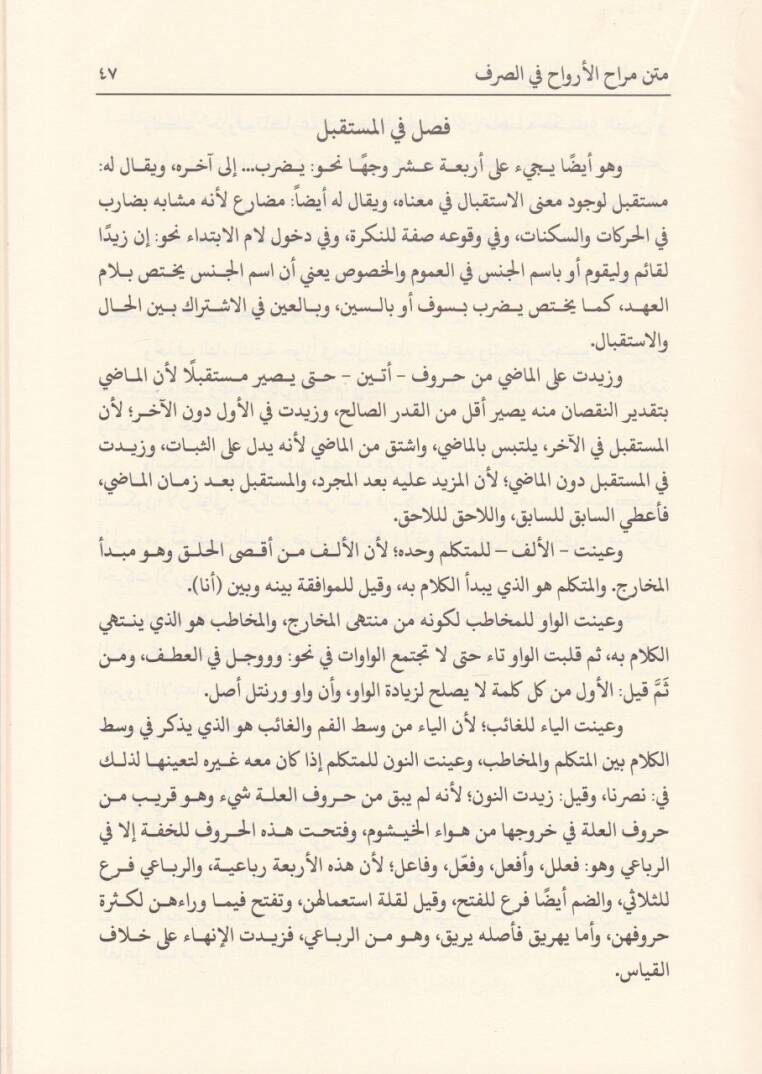 متن مراح الأرواح في الصرف ٤٧
فصل في المستقبل
وهو أيضًا يجيء على أربعة عشر وجهًا نحو: يضرب... إلى آخره، ويقال له:
مستقبل لوجود معنى الاستقبال في معناه، ويقال له أيضاً: مضارع لأنه مشابه بضارب
في الحركات والسكنات، وفي وقوعه صفة للنكرة، وفي دخول لام الابتداء نحو: إن زيدًا
لقائم وليقوم أو باسم الجنس في العموم والخصوص يعني أن اسم الجنس يختص بلام
العهد، كما يختص يضرب بسوف أو بالسين، وبالعين في الاشتراك بين الحال
والاستقبال.
وزيدت على الماضي من حروف - أتين - حتى يصير مستقبلًا لأن الماضي
بتقدير النقصان منه يصير أقل من القدر الصالح، وزيدت في الأول دون الآخر؛ لأن
المستقبل في الآخر، يلتبس بالماضي، واشتق من الماضي لأنه يدل على الثبات، وزيدت
في المستقبل دون الماضي؛ لأن المزيد عليه بعد المجرد، والمستقبل بعد زمان الماضي،
فأعطي السابق للسابق، واللاحق لللاحق.
وعينت - الألف – للمتكلم وحده؛ لأن الألف من أقصى الحلق وهو مبدأ
المخارج. والمتكلم هو الذي يبدأ الكلام به، وقيل للموافقة بينه وبين (أنا).
وعينت الواو للمخاطب لكونه من منتهى المخارج، والمخاطب هو الذي ينتهي
الكلام به، ثم قلبت الواو تاء حتى لا تجتمع الواوات في نحو: وووجل في العطف، ومن
ثَمَّ قيل: الأول من كل كلمة لا يصلح لزيادة الواو، وأن واو ورنتل أصل.
وعينت الياء للغائب؛ لأن الياء من وسط الفم والغائب هو الذي يذكر في وسط
الكلام بين المتكلم والمخاطب، وعينت النون للمتكلم إذا كان معه غيره لتعينها لذلك
في: نصرنا، وقيل: زيدت النون؛ لأنه لم يبق من حروف العلة شيء وهو قريب من
حروف العلة في خروجها من هواء الخيشوم، وفتحت هذه الحروف للخفة إلا في
الرباعي وهو: فعلل، وأفعل، وفعّل، وفاعل؛ لأن هذه الأربعة رباعية، والرباعي فرع
للثلاثي، والضم أيضًا فرع للفتح، وقيل لقلة استعمالهن، وتفتح فيما وراءهن لكثرة
حروفهن، وأما يهريق فأصله يريق، وهو من الرباعي، فزيدت الإنهاء على خلاف
القياس.